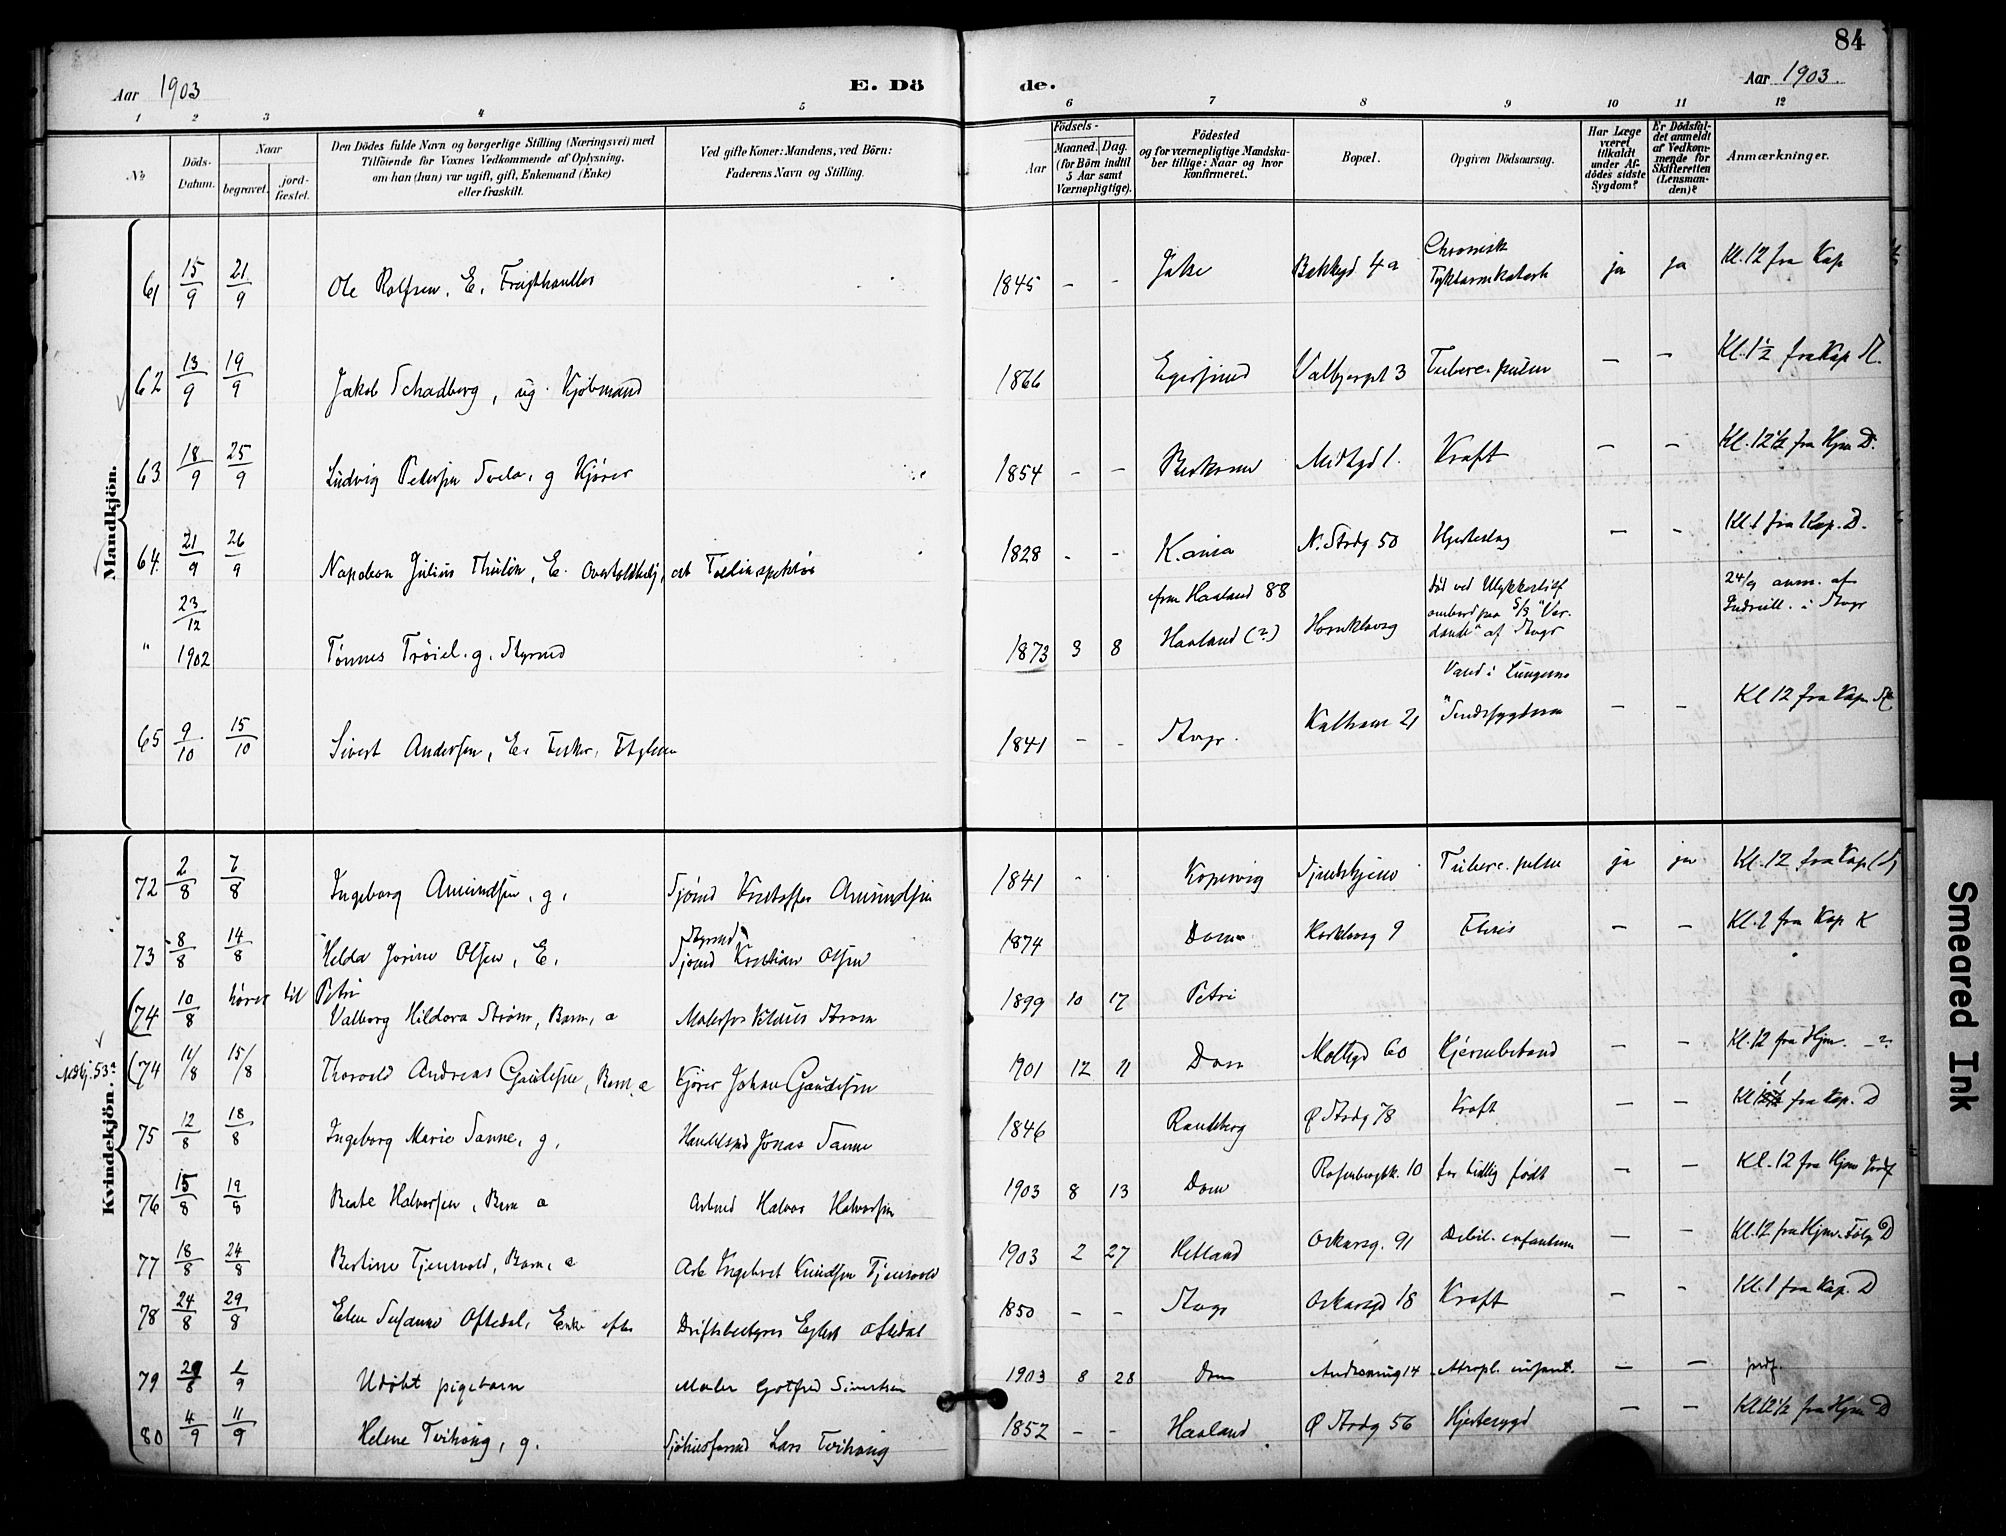 84
Aar 1903
E. Dö
de.
Aar 1903.
1 2 3 4 5 6 7 8 9 10 11 12
No.
Döds-Datum.
Naar
begravet.
jord-fæstet.
Den Dödes fulde Navn og borgerlige Stilling (Næringsvei) med
Tilföiende for Voxnes Vedkommende af Oplysning,
om han (hun) var ugift, gift, Enkemand (Enke)
eller fraskilt.
Ved gifte Koner: Mandens, ved Börn:
Faderens Navn og Stilling.
Födsels-
Aar
Maaned. Dag.
(for Börn indtil
5 Aar samt
Værnepligtige).
Födested
og for værnepligtige Mandska-
ber tillige: Naar og hvor
konfirmeret.
Bopæl.
Opgiven Dödsaarsag.
Har Læge
været
tilkaldt
under Af-
dödes sidste
Sygdom?
Er Dödsfal-
det anmeldt
af Vedkom-
mende for
Skifteretten
(Lensman-
den)?
Anmærkninger.
Mandkjön.
61 15/9 21/9 Ole Rolfsen, E. 1845 - - Bakkgd 4a Chronisk Tyktarmkatarh ja ja Kl. 12 fra Kap
62 13/9 19/9 Jakob Schadberg, ug. Kjøbmand 1866 Egersund Valbjergt 3 Tuberc. pulm — — Kl. 1 1/2 fra Kap
63 18/9 25/9 Ludvig Petersen Tveda, g Kjører 1854 - - Midtgd 1. Kræft — — Kl. 12 1/2 fra Hjm D.
64. 21/9 26/9 Napoleon Julius Thulin, E. Toldinspektør 1828 - - N. Strdg 50 Hjerteslag — - Kl. 1 fra Kap. D.
" 23/12 1902 Tønnes Trøiel. g. Styrmd 1873 3 8 fra Haaland 88 Haaland (?) død ved Ulykkestilf ombord paa S/S "Verdande" af Stvgr 24/9 anm. af
65 9/10 15/10 Sivert Andersen, E. 1841 - - Stvgr. Kalham 21 Vand i Lungerne - - Kl 12 fra Kap.
Kvindekjön.
72 2/8 7/8 Ingeborg Amundsen, g. Sjømd Kristoffer Amundsen 1841 - Kopervig Tuberc. pulm ja ja Kl. 12 fra Kap
73 8/8 14/8 Helda Jorine Olsen, E. Styrmd Sjømd Kristian Olsen 1874 Dom 9 Ftisis - - Kl. 1 fra Kap K
(74 10/8 hører til Petri Valborg Hildora Strøm, Barn, æ Strøm 1899 10 17 Petri
Mdkj. 53 (74 11/8 15/8 Thorvald Andreas Gaudesen, Barn, æ Kjører Johan Gaudesen 1901 12 11 Dom Moltkgd 60 Hjernebetænd — — Kl. 12 fra Hjm. - ?
75 12/8 18/8 Ingeborg Marie Sanne, g. Jonas Sanne 1846 Randeberg Ø Strdg 78 Kræft — — fra Kap. D
76 15/8 19/8 Beate Halvorsen, Barn æ Arbmd Halvor Halvorsen 1903 8 13 Dom Rosenbergbk. 10 for tidlig født — — Kl. 12 fra Hjm Jordf
77 18/8 24/8 Bertine Tjensvold, Barn, æ Arb Ingebret Knudsen Tjensvold 1903 2 27 Hetland Oskarsg. 91 Debil. infantum — — Kl. 12 fra Hjm. Følg D
78 24/8 29/8 Elen Susanne Oftedal, Enke efter Driftsbestyrer Eglert Oftedal 1850 - - Stvgr Oskarsgd 18 Kræft - - Kl. 1 fra Kap. D
79 29/8 1/9 Udøbt pigebarn Maler Gotfred Sivertsen 1903 8 28 Dom 14 Atroph. infant. — — jordf.
80 4/9 11/9 Helene Tvihaug, g. Lars Tvihaug 1852 - - Haaland Ø Strdg 56 Hjertesygd — — Kl 12 1/2 fra Hjm D
Smeared Ink